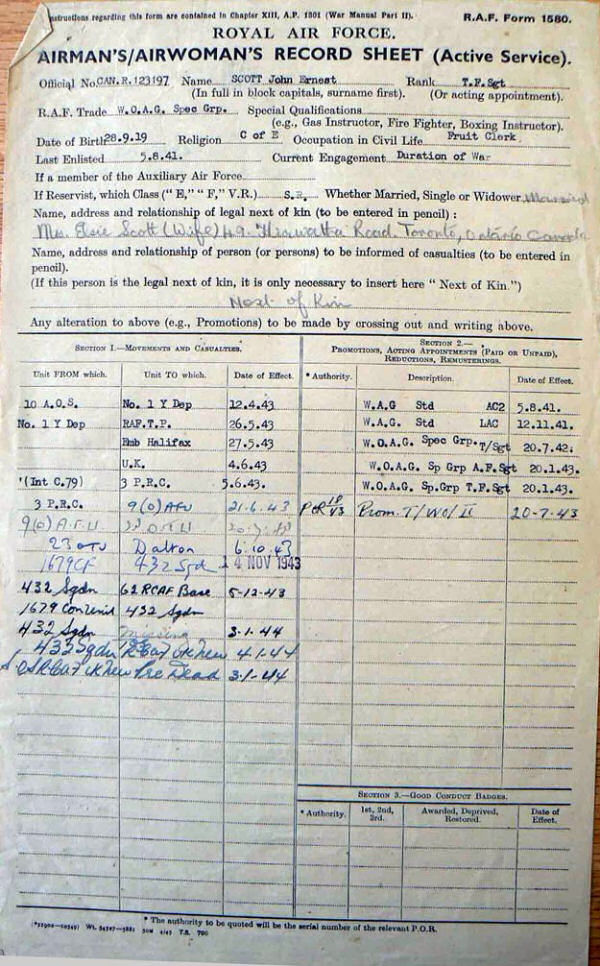 Instructions regarding this form are contained in Chapter XIII, A.P. 1301 (War Manual Part II).
R.A.F. Form 1580.
ROYAL AIR FORCE.
AIRMAN'S/AIRWOMAN'S RECORD SHEET (Active Service).
Official No. CAN.R.123197 Name SCOTT John Ernest Rank T.F.Sgt
(In full in block capitals, surname first). (Or acting appointment).
R.A.F. Trade W.O.A.G. Spec Grp. Special Qualifications
(e.g., Gas Instructor, Fire Fighter, Boxing Instructor).
Date of Birth 28.9.19 Religion C of E Occupation in Civil Life Fruit Clerk
Last Enlisted 5.8.41. Current Engagement Duration of War
If a member of the Auxiliary Air Force
If Reservist, which Class ("E," "F," V.R.) S.R. Whether Married, Single or Widower Married
Name, address and relationship of legal next of kin (to be entered in pencil) :
Mrs. Elsie Scott (Wife) 49. Hiawatha Road. Toronto, Ontario Canada
Name, address and relationship of person (or persons) to be informed of casualties (to be entered in
pencil).
(If this person is the legal next of kin, it is only necessary to insert here "Next of Kin.")
Next of Kin
Any alteration to above (e.g., Promotions) to be made by crossing out and writing above.
SECTION 1.—MOVEMENTS AND CASUALTIES.
Unit FROM which. Unit TO which. Date of Effect.
10 A.O.S. No. 1 Y Dep 12.4.43
No. 1 Y Dep RAF.T.P. 26.5.43
Emb Halifax 27.5.43
U.K. 4.6.43
(Int C.79) 3 P.R.C. 5.6.43.
3 P.R.C. 9(O)AFU 21.6.43
9(O)A.F.U
23 OTU Dalton 6.10.43
1679CF 432 Sqd 14 NOV 1943
432 Sqdn 62 RCAF Base 5-12-43
1679 Con Unit 432 Sqdn
432 Sqdn Missing 3.1.44
432 Sqdn 4.1.44
Pre Dead 3.1.44
SECTION 2.—
PROMOTIONS, ACTING APPOINTMENTS (PAID OR UNPAID),
REDUCTIONS, REMUSTERINGS.
* Authority. Description. Date of Effect.
W.A.G Std AC2 5.8.41.
W.A.G Std LAC 12.11.41.
W.O.A.G. Spec Grp. T/Sgt 20.7.42.
W.O.A.G. Sp Grp A.F.Sgt 20.1.43.
W.O.A.G. Sp.Grp T.F.Sgt 20.1.43.
Prom. T/WO/II 20-7-43
SECTION 3.—GOOD CONDUCT BADGES.
* Authority. 1st, 2nd, 3rd. Awarded, Deprived, Restored. Date of Effect.
* The authority to be quoted will be the serial number of the relevant P.O.R.